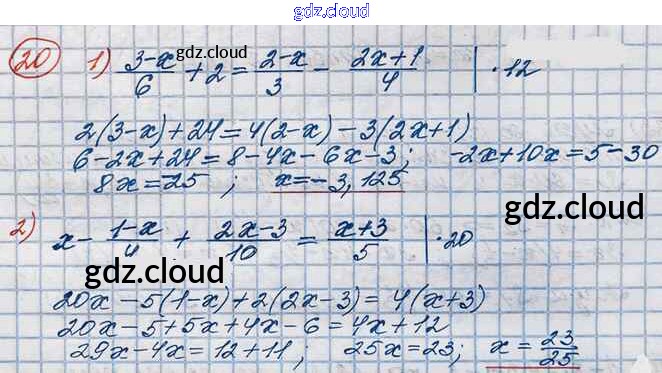 gdz.cloud
20 1) (3-x)/6 + 2 = (2-x)/3 - (2x+1)/4 | · 12
gdz.cloud
2(3-x)+24=4(2-x)-3(2x+1)
6-2x+24=8-4x-6x-3; -2x+10x=5-30
8x=-25; x=-3,125
gdz.cloud
2) x - (1-x)/4 + (2x-3)/10 = (x+3)/5 | · 20
gdz.cloud
20x-5(1-x)+2(2x-3)=4(x+3)
20x-5+5x+4x-6=4x+12
29x-4x=12+11; 25x=23; x=23/25